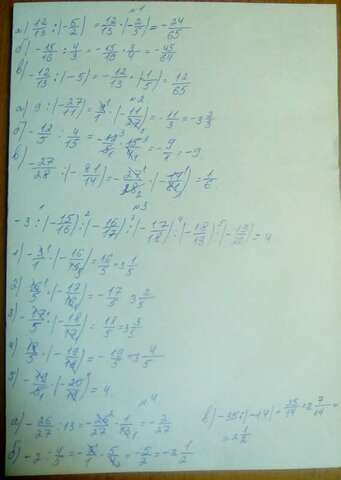 №1
а) 12/13 : (-5/2) = 12/13 · (-2/5) = -24/65
б) -15/16 : 4/3 = -15/16 · 3/4 = -45/64
в) -12/13 : (-5) = -12/13 · (1/5) = 12/65
№2
а) 9 : (-27/11) = 9/1 · (-11/27) = -11/3 = -3 2/3
б) -12/5 : 4/15 = -12/5 · 15/4 = -9/1 = -9
в) -27/28 : (- 81/14) = -27/28 · (-14/81) = 1/6
№3
-3 : (-15/16) : (-16/17) : (-17/18) : (-18/19) : (-19/20) = 4
1) -3/1 · (-16/15) = 16/5 = 3 1/5
2) 16/5 · (-17/16) = -17/5 3 2/5
3) -17/5 · (-18/17) = 18/5 = 3 3/5
4) 18/5 · (-19/18) = -19/5 = 3 4/5
5) -19/5 · (-20/19) = 4
№4
а) -26/27 : 13 = -26/27 · 1/13 = -2/27
в) -35 : (-14) = 35/14 = 2 7/14 =
= 2 1/2
б) -2 : 4/5 = -2/1 · 5/4 = -5/2 = -2 1/2